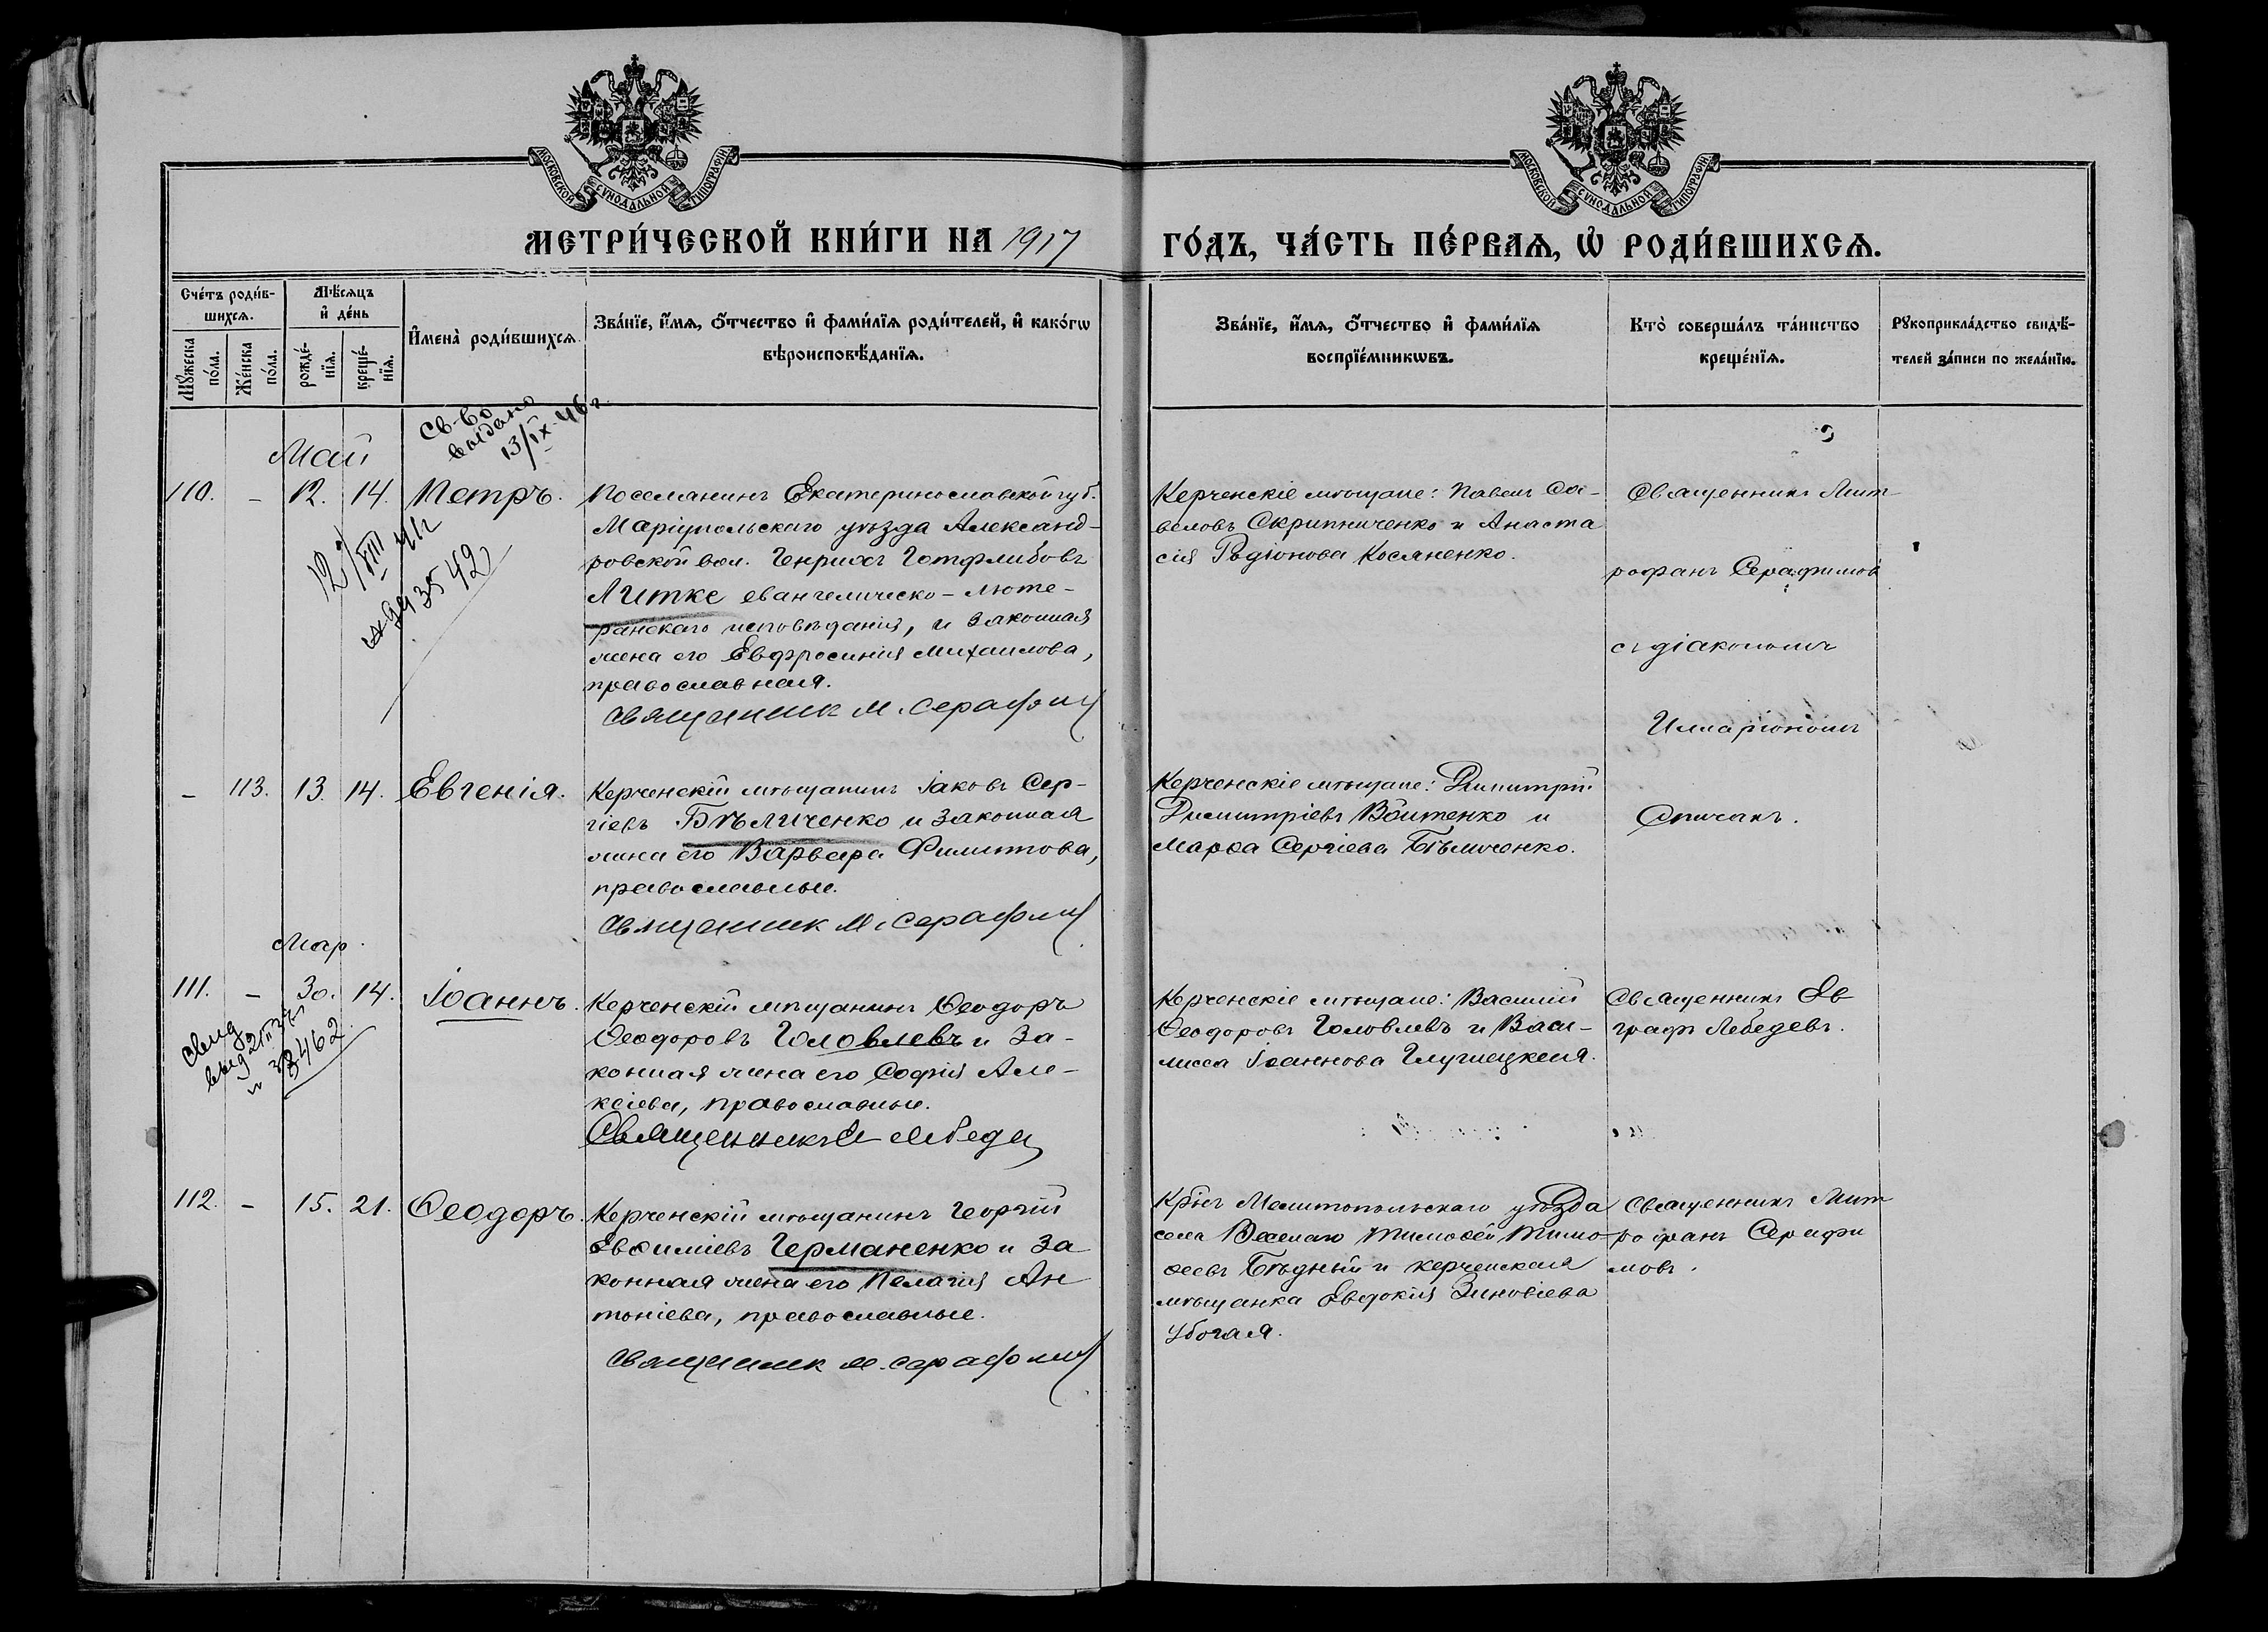 МОСКОВСКОЙ СѴНОДАЛЬНОЙ ТИПОГРАФІИ
МОСКОВСКОЙ СѴНОДАЛЬНОЙ ТИПОГРАФІИ
МЕТРИ́ЧЕСКОЙ КНИ́ГИ НА 1917
ГО́ДЪ, ЧА́СТЬ ПЕ́РВАѦ, Ѡ҆ РОДИ́ВШИХСѦ.
Сче́тъ роди́в-
шихсѧ.
Мꙋ́жеска
по́ла.
Же́нска
по́ла.
Мѣ́сѧцъ
и҆ де́нь
рожде́-
нїѧ.
креще́-
нїѧ.
И҆мена̀ роди́вшихсѧ.
Зва́нїе, и҆́мѧ, ѻ҆́тчество и҆ фами́лїѧ роди́телей, и҆ како́гѡ
вѣроисповѣ́данїѧ.
Зва́нїе, и҆́мѧ, ѻ҆́тчество и҆ фами́лїѧ
воспрїе́мникѡвъ.
Кто̀ соверша́лъ та́инство
креще́нїѧ.
Рꙋкоприкла́дство свидѣ́-
телей за́писи по жела́нїю.
Св-во
выдано
13/IX-46 г.
Май
110. - 12. 14. Петръ.
12/VIII 41г
3542
Поселянинъ Екатеринославской губ.
Маріупольскаго уѣзда Александ-
ровской вол. Генрихъ Готфлибовъ
Литке евангелическо-люте-
ранскаго исповѣданія, и законная
жена его Евфросинія Михаилова,
православная.
Священник М. Серафим
Керченскіе мѣщане: Павелъ Са-
веловъ Скрипниченко и Анаста
сія Родіонова Косяненко.
Священникъ Мит-
рофанъ Серафимовъ
съ діакономъ
Иларіономъ
Спичакъ.
- 113. 13. 14. Евгенія.
Керченскій мѣщанинъ Іаковъ Сер-
гіевъ Бѣличенко и законная
жена его Варвара Филиппова,
православные.
Священник М. Серафим
Керченскіе мѣщане: Димитрій
Димитріевъ Войтенко и
Марѳа Сергіева Бѣличенко.
Мар.
111. - 30. 14. Іоаннъ.
Свид
выд
38462
Керченскій мѣщанинъ Ѳеодоръ
Ѳеодоровъ Головлевъ и за-
конная жена его Софія Але-
ксіева, православные.
Священникъ Е Лебеде
Керченскіе мѣщане: Василій
Ѳеодоровъ Головлевъ и Васи-
лисса Іоаннова
Священникъ Ев
графъ Лебедевъ.
112. - 15. 21. Ѳеодоръ.
Керченскій мѣщанинъ Георгій
Евѳиміевъ Германенко и за
конная жена его Пелагія Ан
тоніева, православные.
Священник М. Серафим
Кр-нъ Мелитопольскаго уѣзда
села Веселаго Тимоѳей Тимо-
ѳеевъ Бѣдный и керченская
мѣщанка Евдокія Зиновіева
Убогая.
Священникъ Мит
рофанъ Серафи
мовъ.